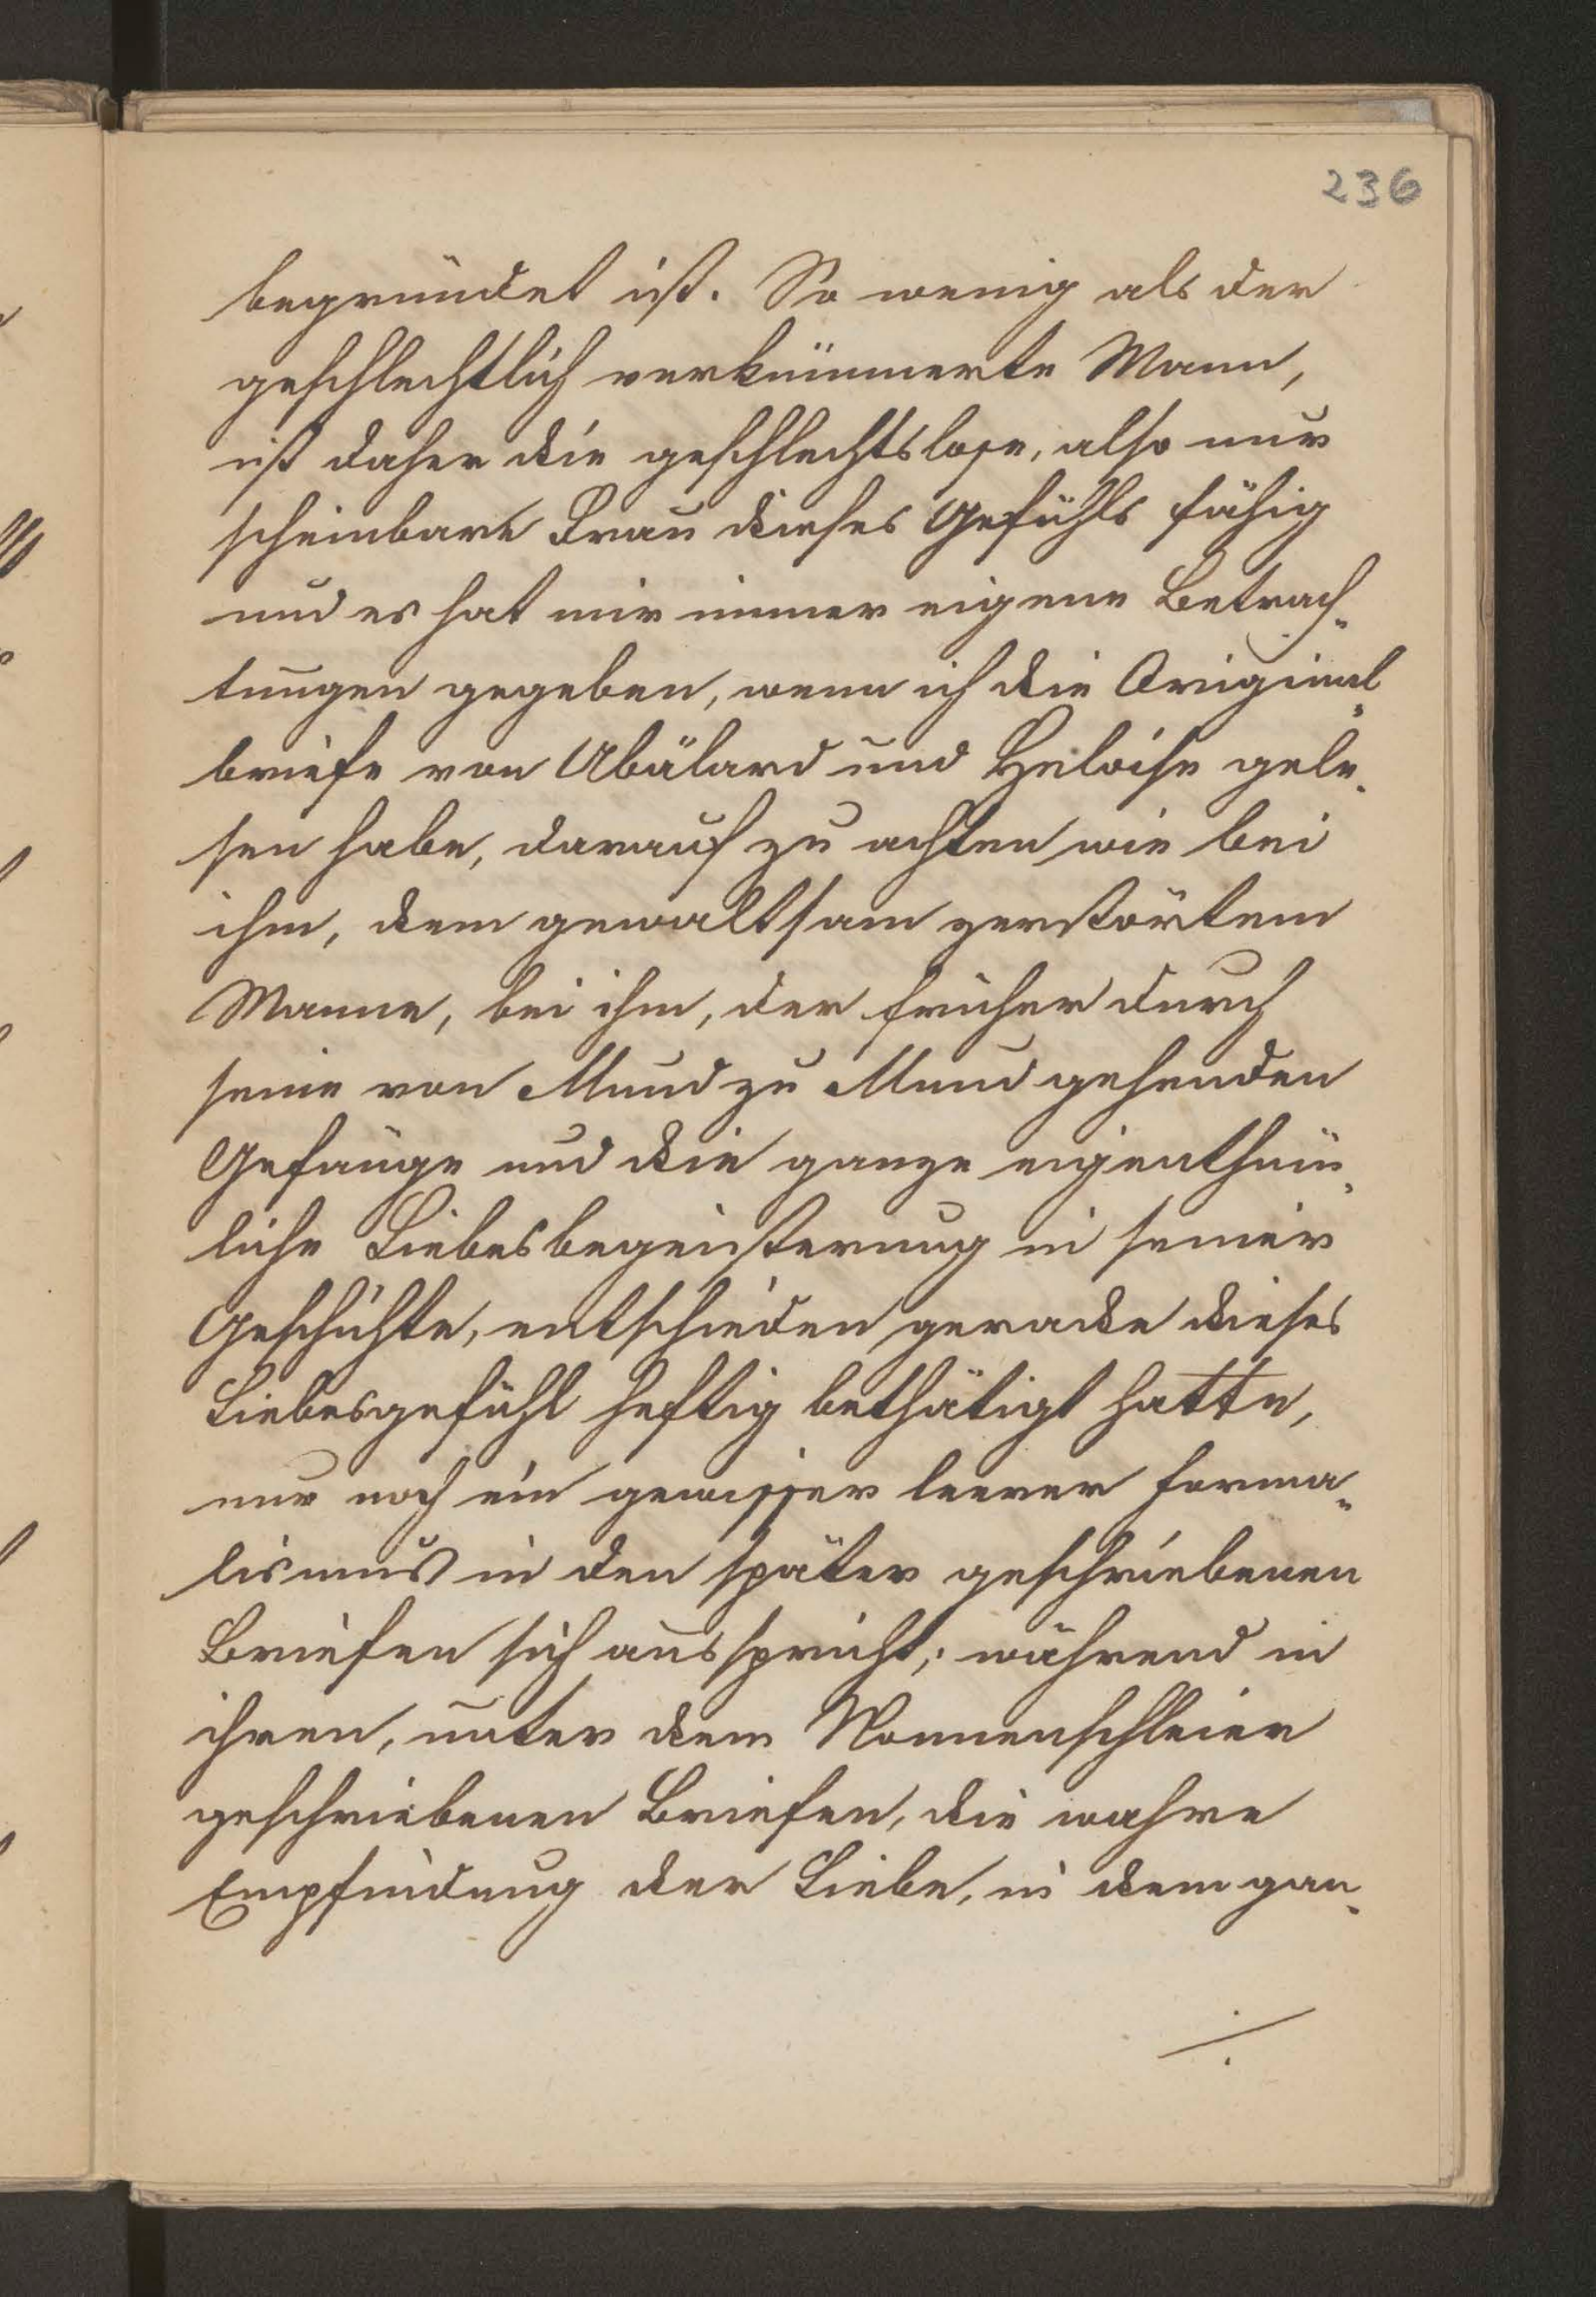 236
begründet ist. So wenig als der
geschlechtlich verkümmerte Mann,
ist daher die geschlechtslose, also nur
scheinbare Frau dieses Gefühls fähig
und es hat mir immer eigene Betrach-
tungen gegeben, wenn ich die Original-
briefe von Abälard und Heloise gele-
sen habe, darauf zu achten wie bei
ihm, dem gewaltsam zerstörtem
Manne, bei ihm, der früher durch
seine von Mund zu Mund gehenden
Gesänge und die ganze eigenthüm-
liche Liebesbegeisterung in seiner
Geschichte, entschieden gerade dieses
Liebesgefühl heftig bethätigt hatte,
nur noch ein gewisser leerer Forma-
lismus in den später geschriebenen
Briefen sich ausspricht; während in
ihren, unter dem Nonnenschleier
geschriebenen Briefen, die wahre
Empfindung der Liebe, in dem gan-
./.